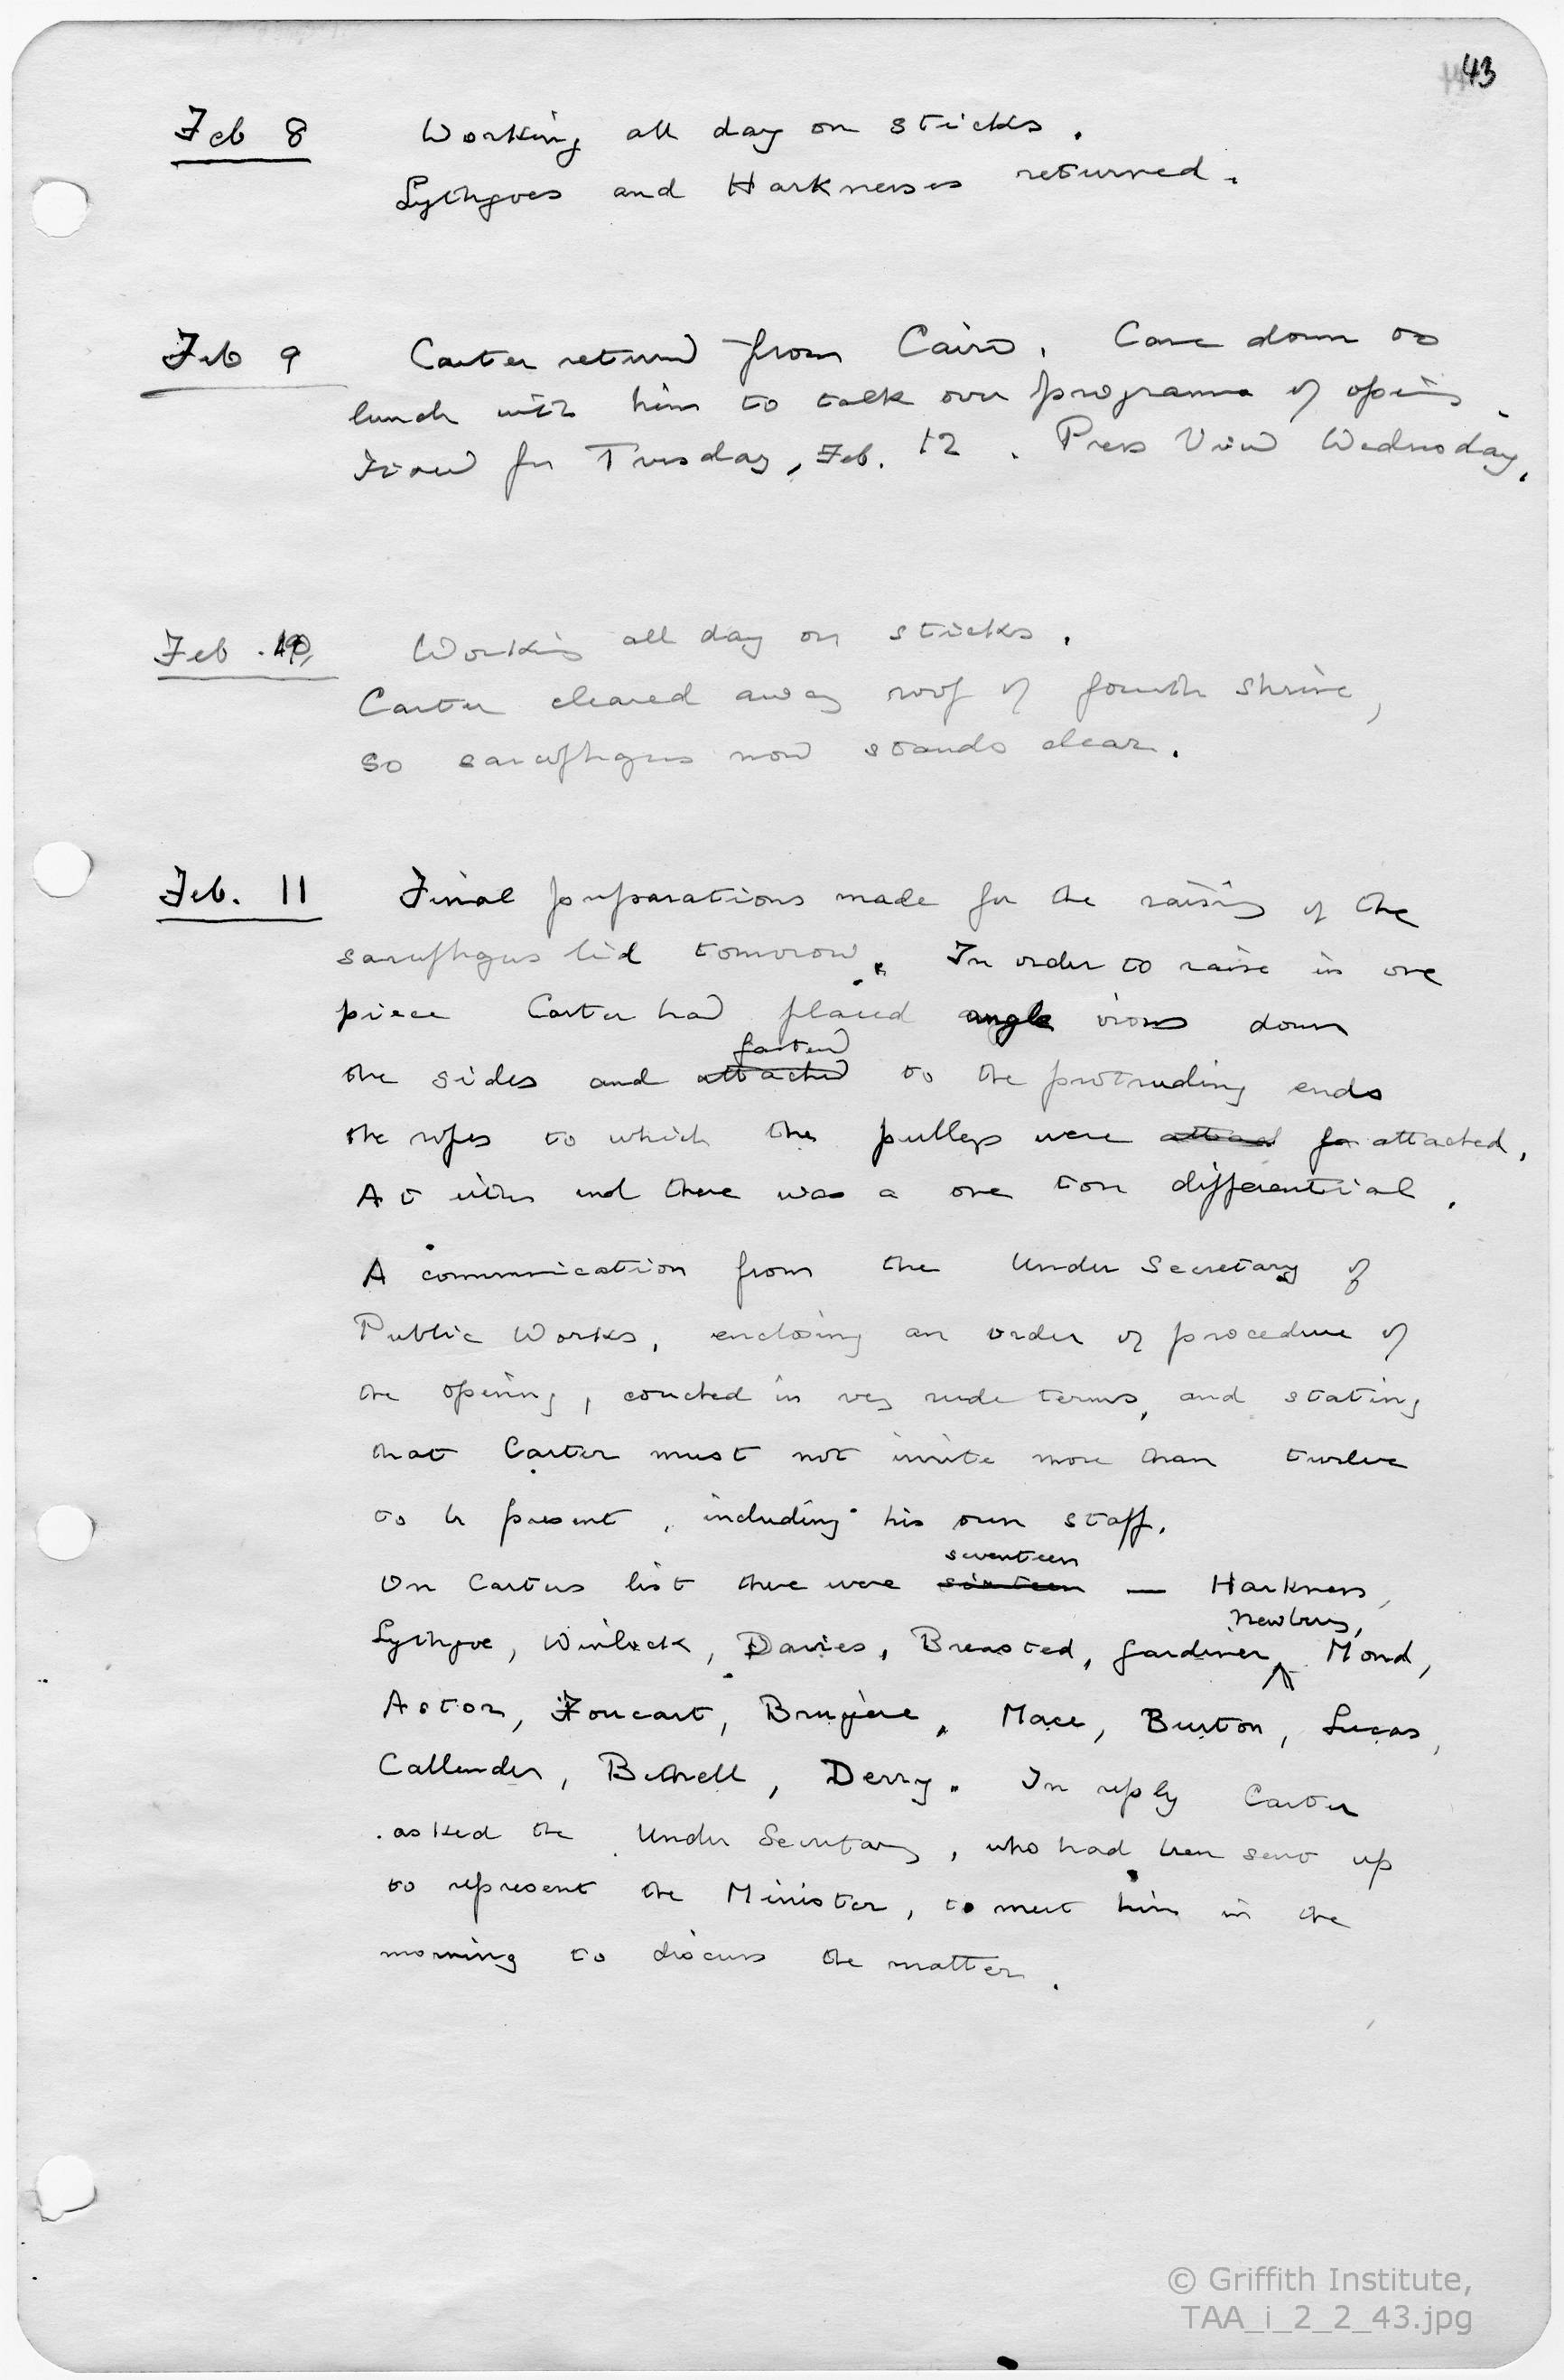 43
Feb 8 Working all day on sticks.
Lythgoes and Harknesses returned.
Feb 9 Carter returned from Cairo. Came down to
lunch with him to talk over programme of opening.
Fixed for Tuesday, Feb. 12. Press View Wednesday.
Feb. 10, Working all day on sticks.
Carter cleared away roof of fourth shrine,
so sarcophagus now stands clear.
Feb. 11 Final preparations made for the raising of the
sarcophagus lid tomorrow. In order to raise in one
piece Carter had placed angle irons down
fastened
the sides and attached to the protruding ends
the ropes to which the pulleys were attached.
At either end there was a one ton differential.
A communication from the Under Secretary of
Public Works, enclosing an order of procedure of
the opening, couched in very rude terms, and stating
that Carter must not invite more than twelve
to be present, including his own staff.
seventeen
On Carters list there were sixteen — Harkness,
Newberry,
Lythgoe, Winlock, Davies, Breasted, Gardiner, Mond,
Astor, Foucart, Bruyère, Mace, Burton, Lucas,
Callender, Bethell, Derry. In reply Carter
asked the Under Secretary, who had been sent up
to represent the Minister, to meet him in the
morning to discuss the matter.
© Griffith Institute,
TAA_i_2_2_43.jpg